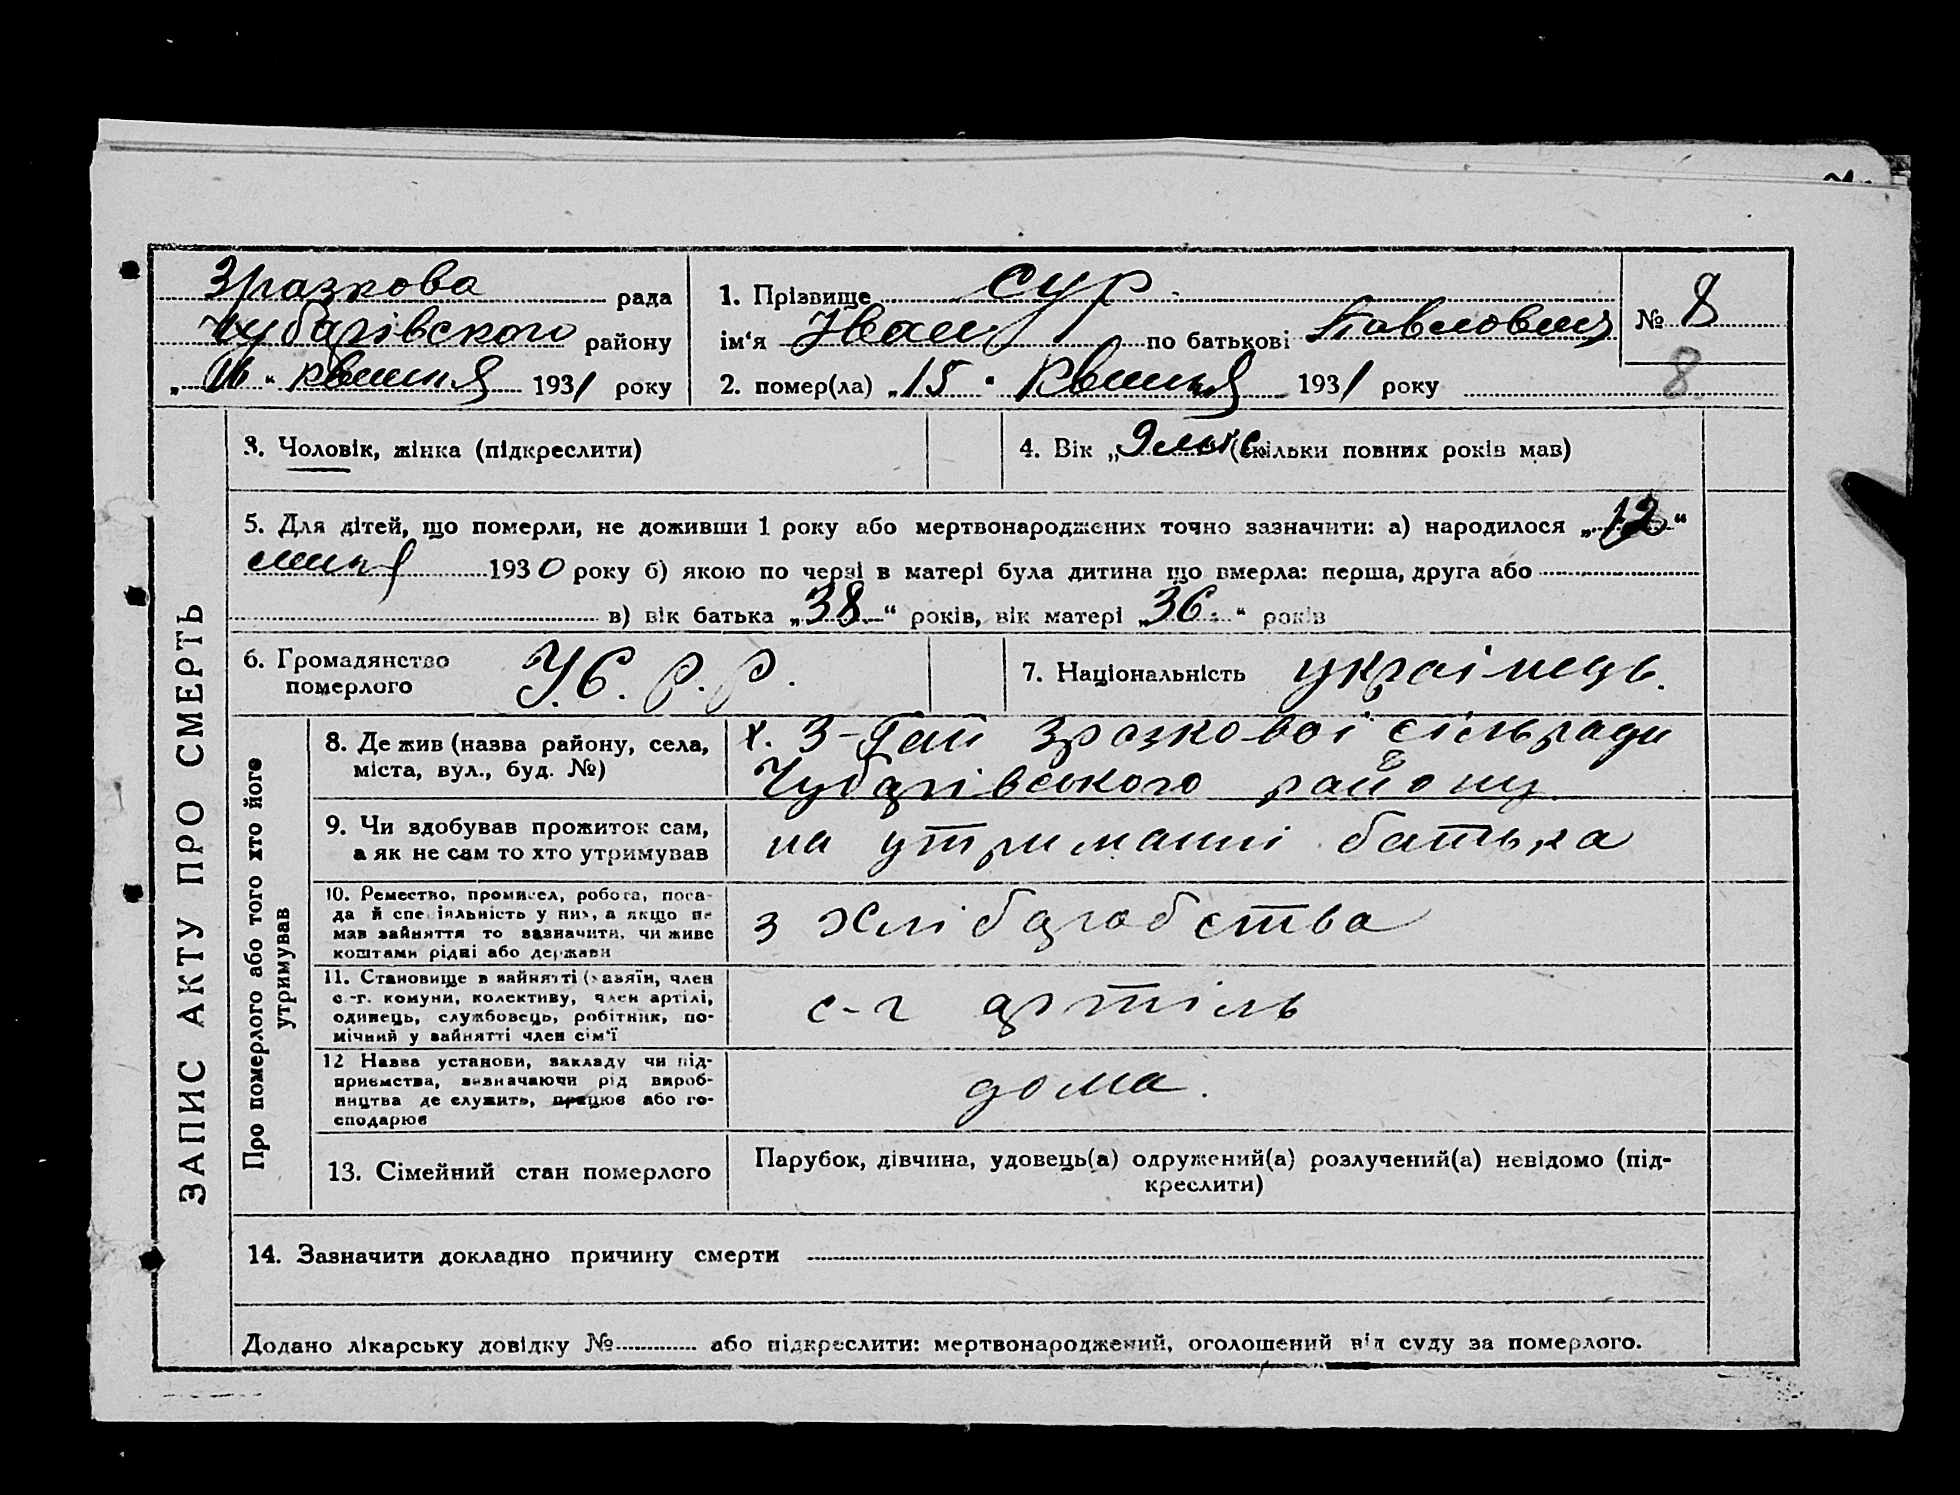 Зразкова рада
Чубарівского району
„ 16 “ квітня 1931 року
1. Прізвище Сур
ім‘я Іван по батькові Павлович
2. помер(ла) „ 15 “ Квітня 1931 року
№ 8
8
ЗАПИС АКТУ ПРО СМЕРТЬ
3. Чоловік, жінка (підкреслити)
4. Вік „ 9 міс (скільки повних років мав)
5. Для дітей, що померли, не доживши 1 року або мертвонароджених точно зазначити: а) народилося „ 12 “
1930 року б) якою по черзі в матері була дитина що вмерла: перша, друга або
в) вік батька „ 38 “ років, вік матері „ 36 “ років
6. Громадянство
померлого
У.С.Р.Р.
7. Національність українець.
Про померлого або того хто його
утримував
8. Де жив (назва району, села,
міста, вул., буд. №)
х. З-Гай Зразковоі сільради
Чубарівського району
9. Чи здобував прожиток сам,
а як не сам то хто утримував
на утриманні батька
10. Ремество, промисел, робота, поса-
да й спеціяльність у них, а якщо не
мав зайняття то зазначити, чи живе
коштами рідні або держави
з хліборобства
11. Становище в зайнятті (хазяїн, член
с.-г. комуни, колективу, член артілі,
одинець, службовець, робітник, по-
мічний у зайнятті член сім‘ї
с-г артіль
12 Назва установи, закладу чи під-
приємства, зазначаючи рід вироб-
ництва де служить, працює або го-
сподарює
дома.
13. Сімейний стан померлого
Парубок, дівчина, удовець(а) одружений(а) розлучений(а) невідомо (під-
креслити)
14. Зазначити докладно причину смерти
Додано лікарську довідку № або підкреслити: мертвонароджений, оголошений від суду за померлого.